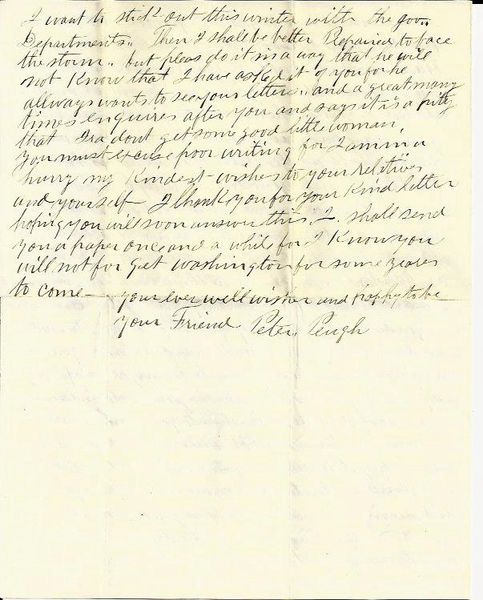 I want to stick out this winter with the Gov..
Departments.. Then I shall be better Prepaired to face
the storm.. but pleas do it in a way that he will
not Know that I have asked it of you for he
allways wants to see your letters.. and a great many
times enquires after you and says it is a pitty
that Ira dont get some good little woman,
you must excuse poor writing for I am in a
hurry my Kindest wishes to your relatives
and yourself I thank you for your Kind letter
hoping you will soon answer this. I shall send
you a paper once and a while for I Know you
will not for get washington for some years
to come— your ever well wisher and happy to be
your Friend Peter Peugh